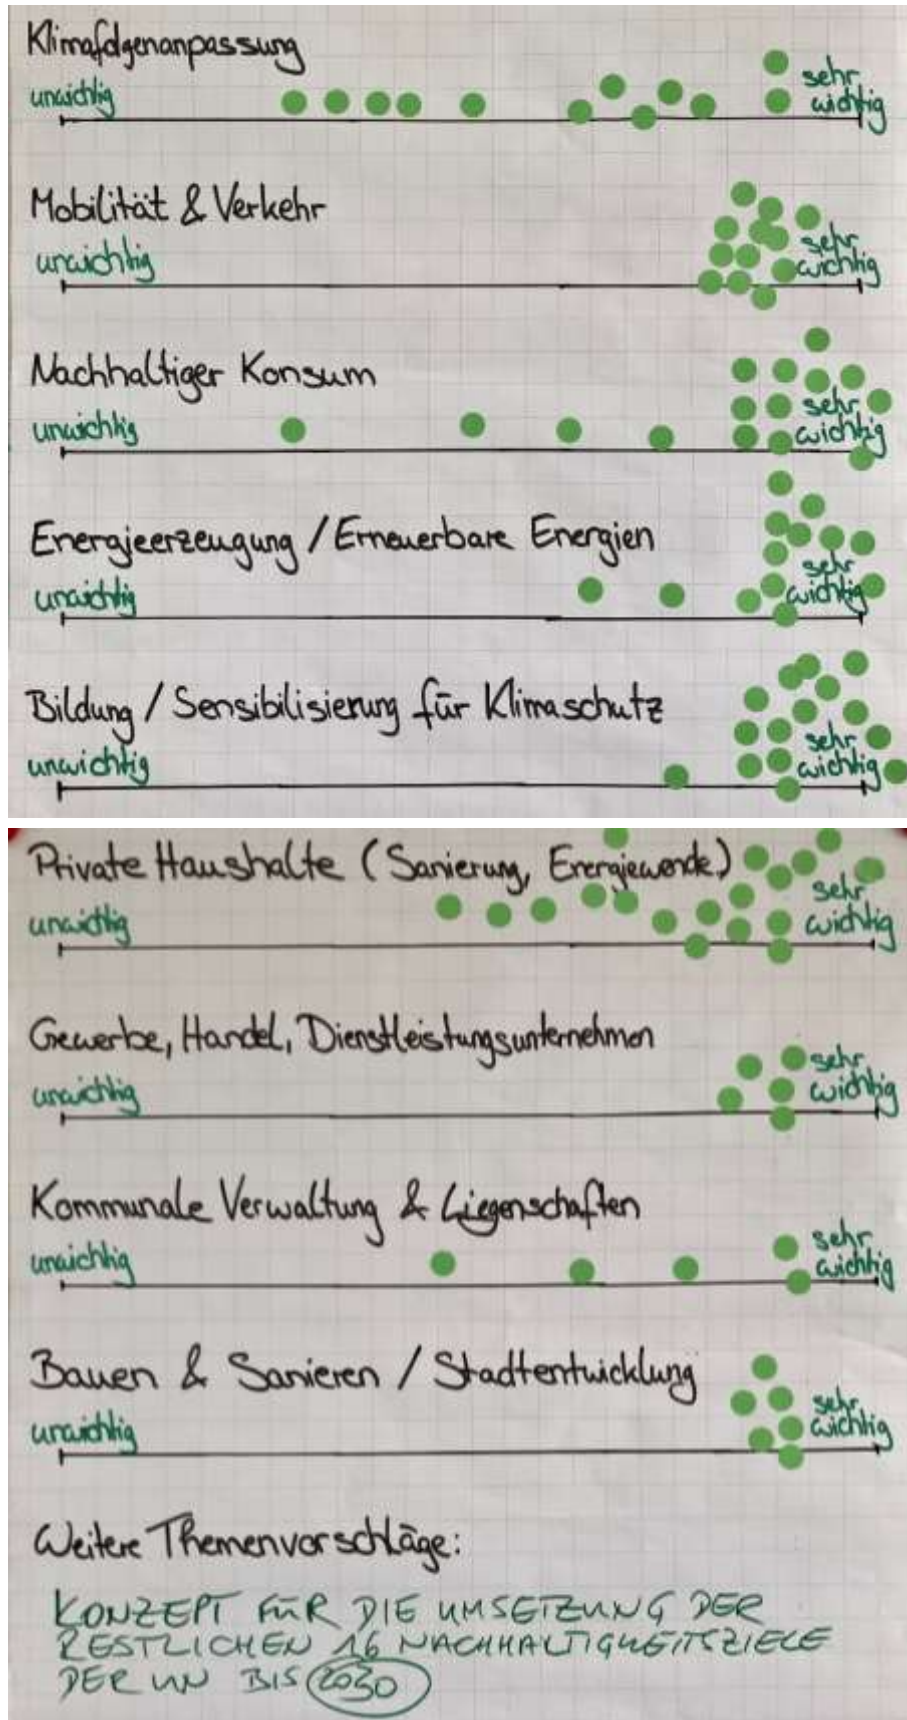 Klimafolgenanpassung
unwichtig
sehr
wichtig
Mobilität & Verkehr
unwichtig
sehr
wichtig
Nachhaltiger Konsum
unwichtig
sehr
wichtig
Energieerzeugung / Erneuerbare Energien
unwichtig
sehr
wichtig
Bildung / Sensibilisierung für Klimaschutz
unwichtig
sehr
wichtig
Private Haushalte (Sanierung, Energiewende)
unwichtig
sehr
wichtig
Gewerbe, Handel, Dienstleistungsunternehmen
unwichtig
sehr
wichtig
Kommunale Verwaltung & Liegenschaften
unwichtig
sehr
wichtig
Bauen & Sanieren / Stadtentwicklung
unwichtig
sehr
wichtig
Weitere Themenvorschläge:
KONZEPT FÜR DIE UMSETZUNG DER
RESTLICHEN 16 NACHHALTIGKEITSZIELE
DER UN BIS 2030